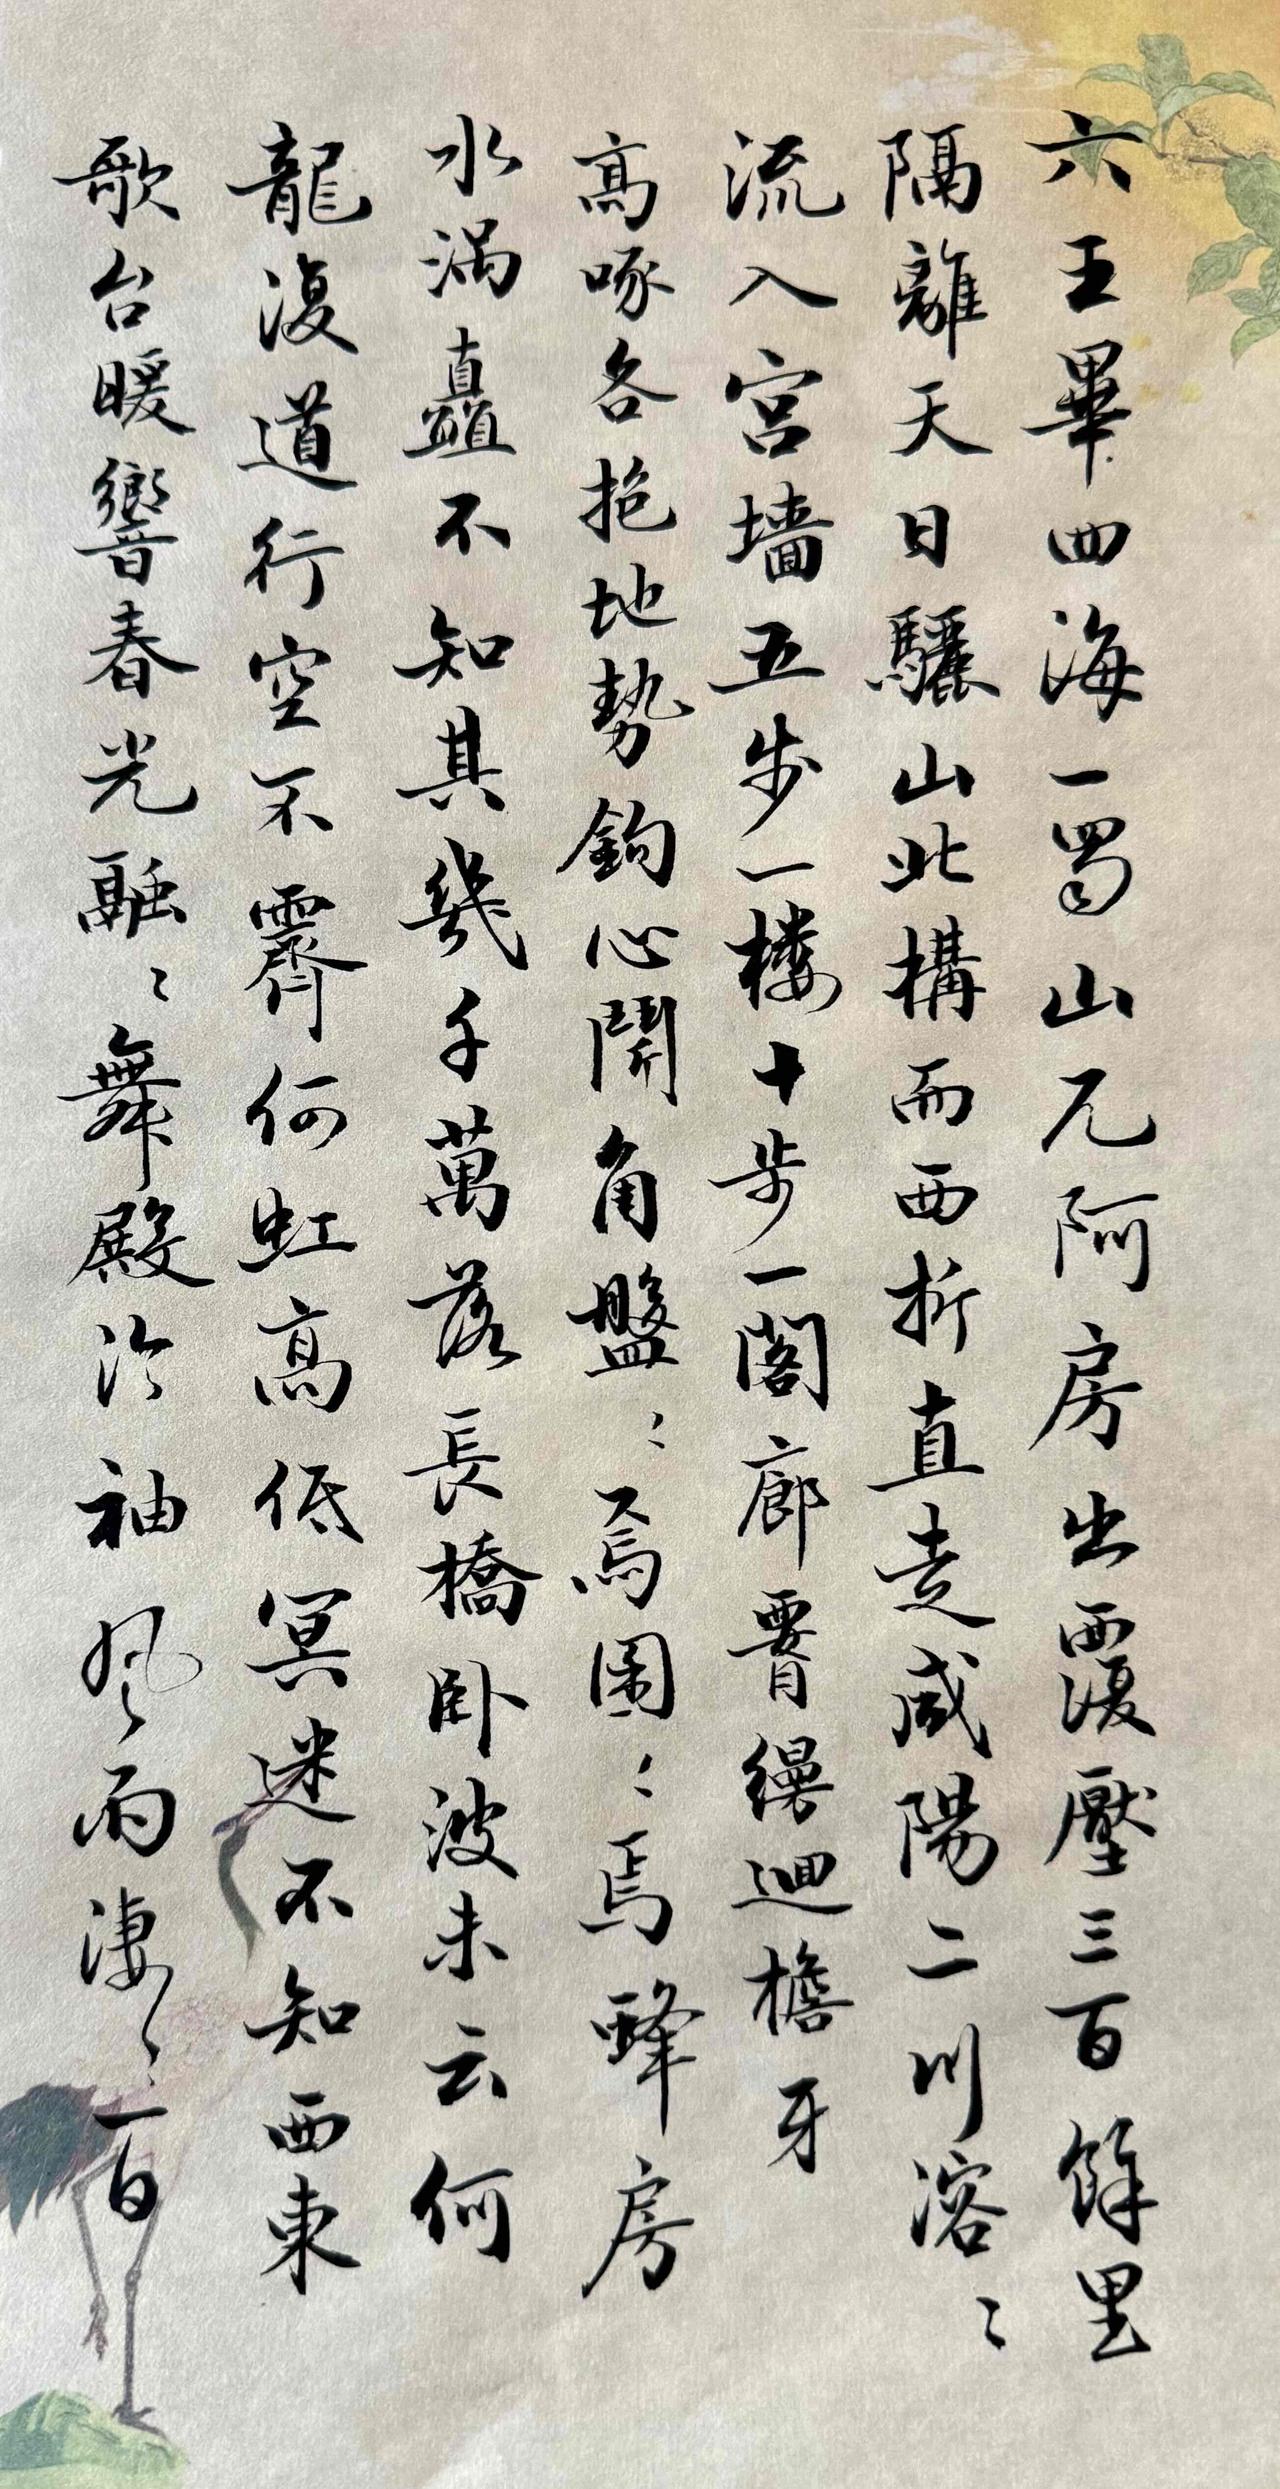 六王畢四海一蜀山兀阿房出覆壓三百餘里
隔離天日驪山北構而西折直走咸陽二川溶〻
流入宮墻五步一楼十步一閣廊署縵迴檐牙
高啄各抱地勢鉤心鬭角盤〻焉囷〻焉蜂房
水渦矗不知其幾千萬落長橋卧波未云何
龍復道行空不霽何虹高低冥迷不知西東
歌台暖響春光融〻舞殿冷袖風雨淒〻一日